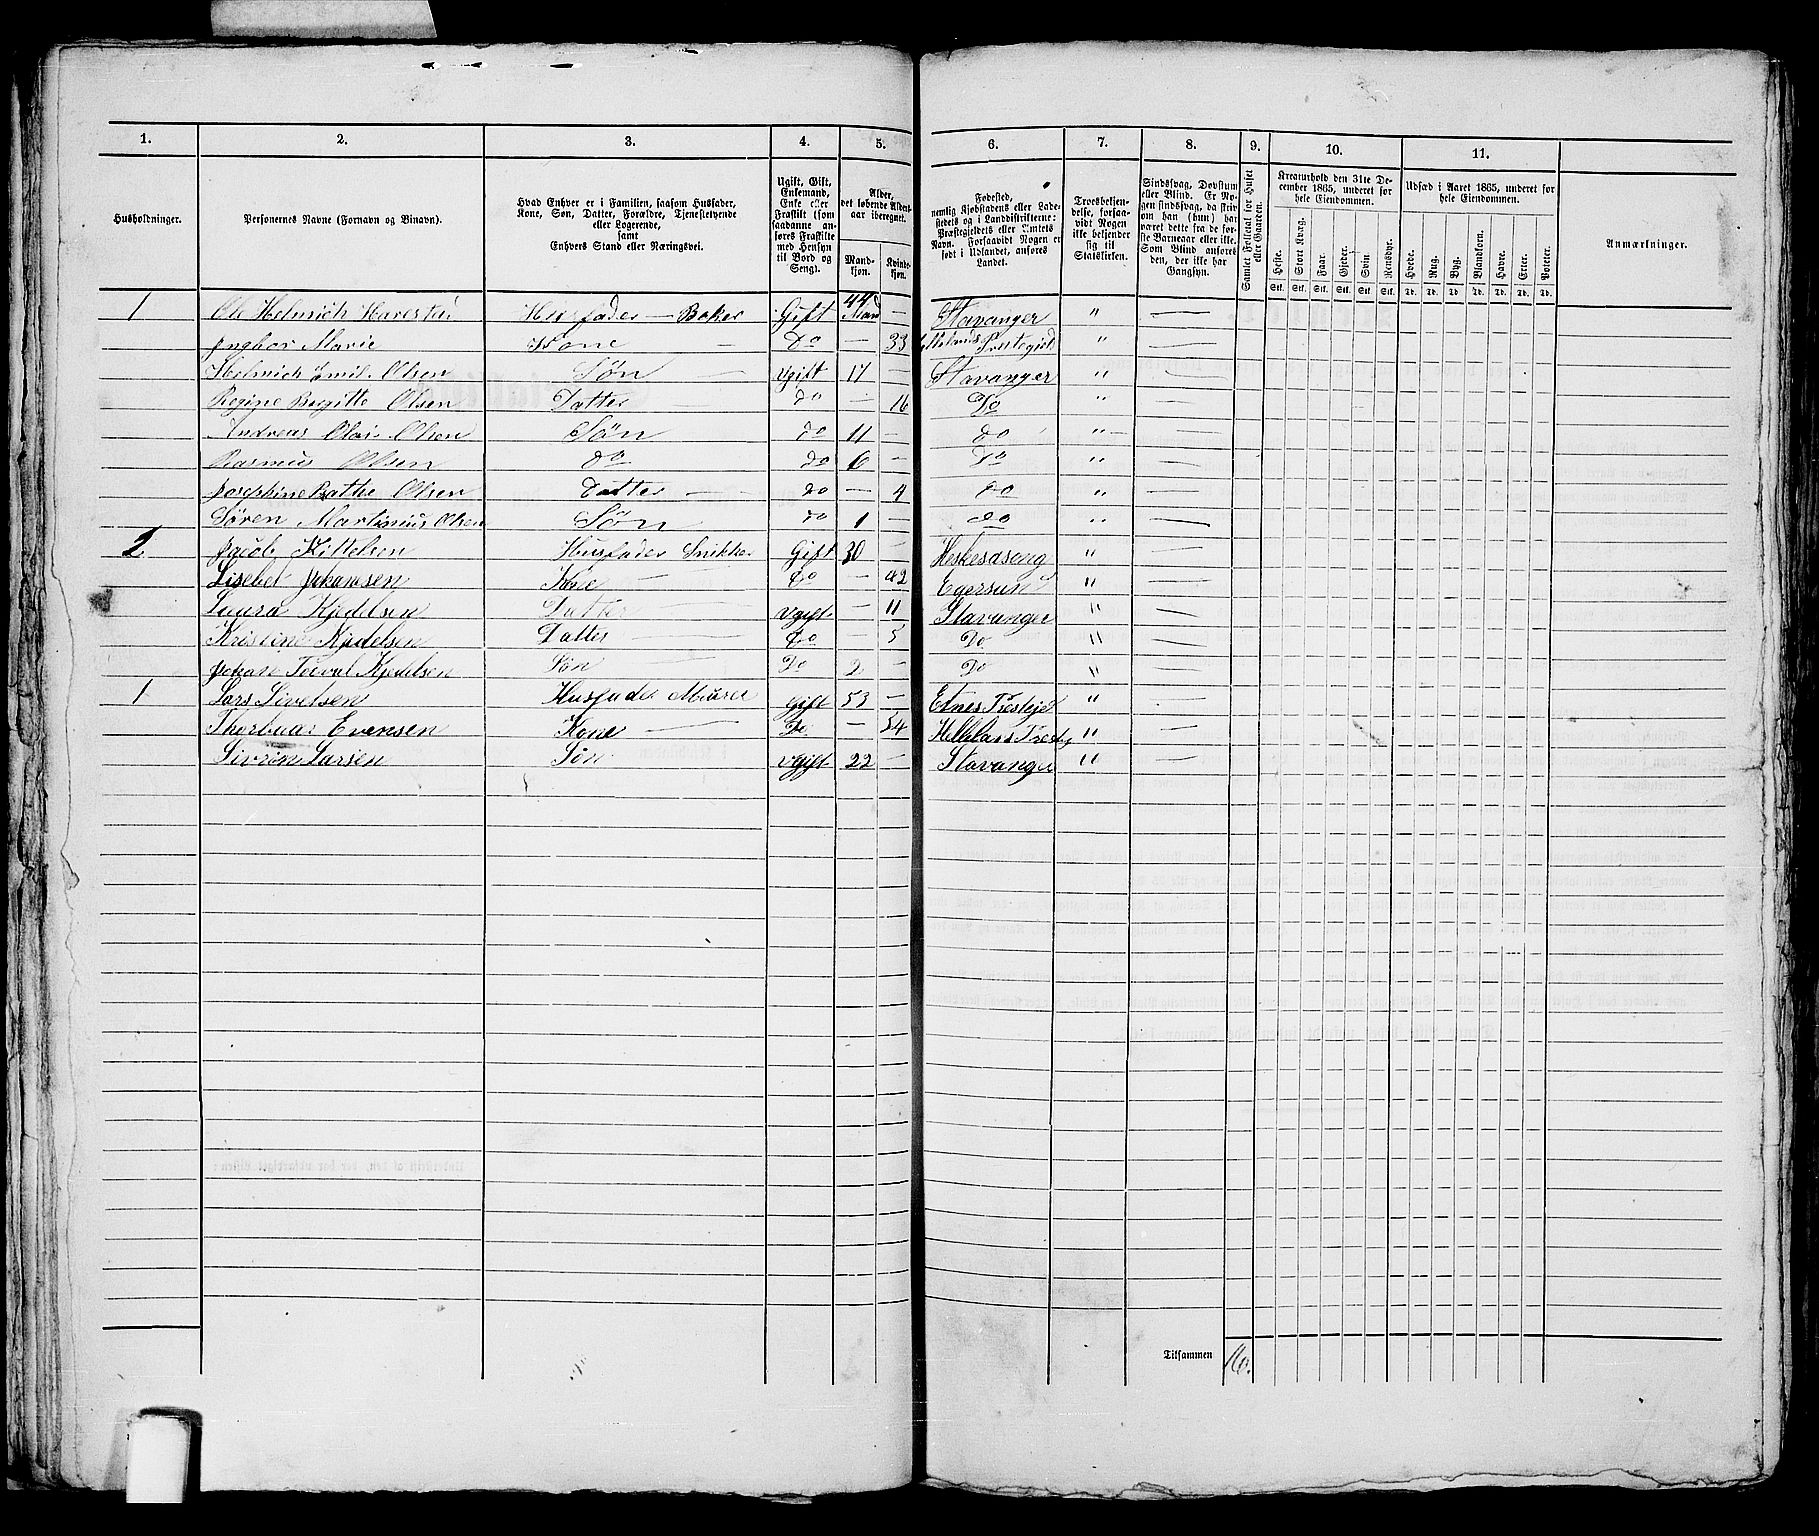 1. 2. 3. 4. 5. 6. 7. 8. 9. 10. 11.
Husholdninger.
Personernes Navne (Fornavn og Binavn).
Hvad Enhver er i Familien, saasom Husfader,
Kone, Søn, Datter, Forældre, Tjenestetyende
eller Logerende,
samt
Enhvers Stand eller Næringsvei.
Ugift, Gift,
Enkemand,
Enke eller
Fraskilt (som
saadanne an-
føres Fraskilte
med Hensyn
til Bord og
Seng).
Alder,
det løbende Alders-
aar iberegnet.
Mand-
kjøn.
Kvinde-
kjøn.
Fødested,
nemlig Kjøbstadens eller Lade-
stedets og i Landdistrikterne:
Præstegjeldets eller Amtets
Navn. Forsaavidt Nogen er
født i Udlandet, anføres
Landet.
Troesbekjen-
delse, forsaa-
vidt Nogen
ikke bekjender
sig til
Statskirken.
Sindssvag, Døvstum
eller Blind. Er No-
gen sindssvag, da skri-
om han (hun) har
været dette fra de før-
ste Barneaar eller ikke.
Som Blind anføres
den, der ikke har
Gangsyn.
Samlet Folketal for Huset
eller Gaarden.
Kreaturhold den 31te De-
cember 1865, underet for
hele Eiendommen.
Heste. Stort Kvæg. Faar. Gjeder. Svin. Rensdyr.
Stk. Stk. Stk. Stk. Stk. Stk.
Udsæd i Aaret 1865, underet for
hele Eiendommen.
Hvede. Rug. Byg. Blandkorn. Havre. Erter. Poteter.
Td. Td. Td. Td. Td. Td. Td.
Anmærkninger.
1 Ole Helmich Harestad Husfader — Baker Gift 44 — Stavanger " —
Ingbor Marie Kone do — 33 Præstegjeld " —
Helmich Emil Olsen Søn — Ugift 17 — Stavanger " —
Regine Bergitte Olsen Datter do — 16 Do " —
Andreas Olai Olsen Søn do 11 — do " —
Rasmus Olsen do do 6 — Do " —
Josephine Bathe Olsen Datter — do — 4 do " —
Søren Martinius Olsen Søn do 1 — do " —
2 Jacob Kittelsen Husfader Snikker Gift 30 — " —
Lisebet Johansen Kone — do — 42 Egersund " —
Laura Kjedelsen Datter Ugift — 11 Stavanger " —
Kristine Kjedelsen Datter — Do — 5 Do " —
Johan Toeval Kjedelsen Søn — Do 2 — Do " —
1 Lars Sivetsen Husfader Murer Gift 53 — Etnes Prestejel " —
Thorbaar Evensen Kone — Do — 54 " —
Sivrin Larsen Søn — Ugift 22 — Stavanger " —
Tilsammen 16.